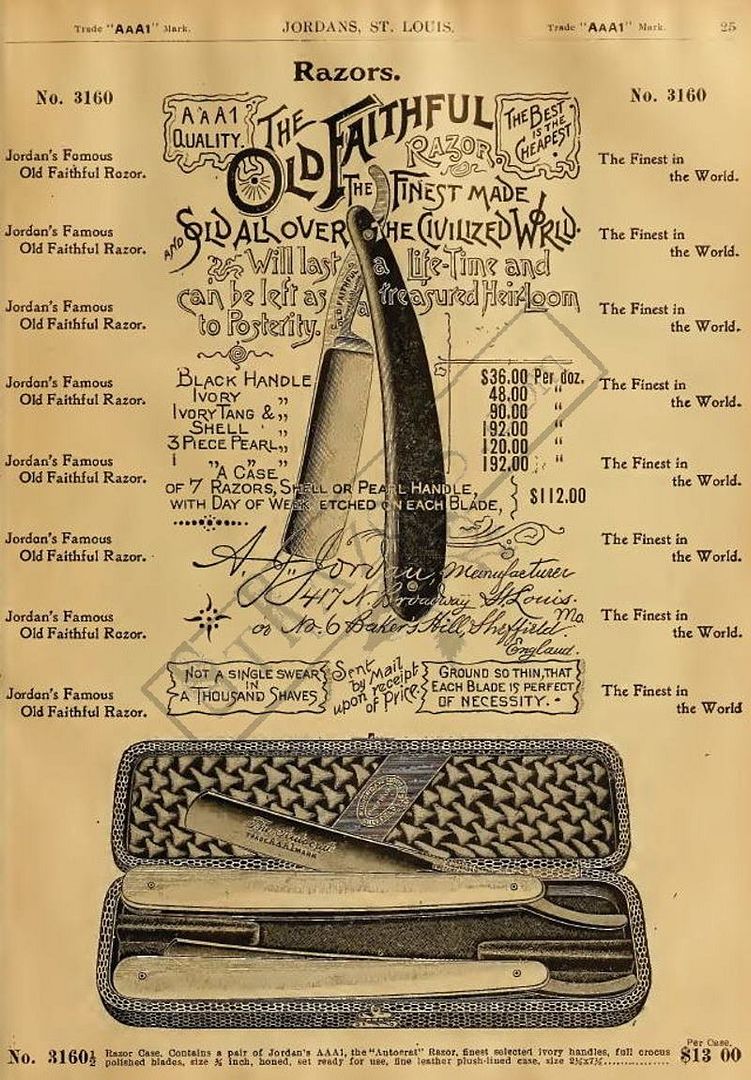 Trade "AAA1" Mark. JORDANS, ST. LOUIS. Trade "AAA1" Mark. 25
Razors.
No. 3160
No. 3160
AAA1
QUALITY.
THE
OLD FAITHFUL
RAZOR.
THE BEST
IS THE
CHEAPEST
THE FINEST MADE
AND SOLD ALL OVER THE CIVILIZED WORLD.
Will last a Life-Time and
can be left as a treasured HeirLoom
to Posterity.
Jordan's Famous
Old Faithful Razor.
The Finest in
the World.
Jordan's Famous
Old Faithful Razor.
The Finest in
the World.
Jordan's Famous
Old Faithful Razor.
The Finest in
the World.
Jordan's Famous
Old Faithful Razor.
The Finest in
the World.
Jordan's Famous
Old Faithful Razor.
The Finest in
the World.
Jordan's Famous
Old Faithful Razor.
The Finest in
the World.
Jordan's Famous
Old Faithful Razor.
The Finest in
the World.
Jordan's Famous
Old Faithful Razor.
The Finest in
the World
OLD FAITHFUL
BLACK HANDLE $36.00 Per doz.
IVORY „ 48.00 "
IVORY TANG & „ 90.00 "
SHELL „ 192.00 "
3 PIECE PEARL „ 120.00 "
1 „ „ „ 192.00 "
"A CASE
OF 7 RAZORS, SHELL OR PEARL HANDLE,
WITH DAY OF WEEK ETCHED ON EACH BLADE, $112.00
A. J. Jordan, Manufacturer
417 N. Broadway St. Louis. Mo.
or No. 6 Bakers Hill, Sheffield.
England.
NOT A SINGLE SWEAR
IN
A THOUSAND SHAVES
Sent by Mail
upon receipt
of Price.
GROUND SO THIN, THAT
EACH BLADE IS PERFECT
OF NECESSITY.
TRADE AAA1 MARK
No. 3160½ Razor Case. Contains a pair of Jordan's AAA1, the "Autocrat" Razor, finest selected ivory handles, full crocus
polished blades, size ⅝ inch, honed, set ready for use, fine leather plush-lined case, size
Per Case.
$13 00